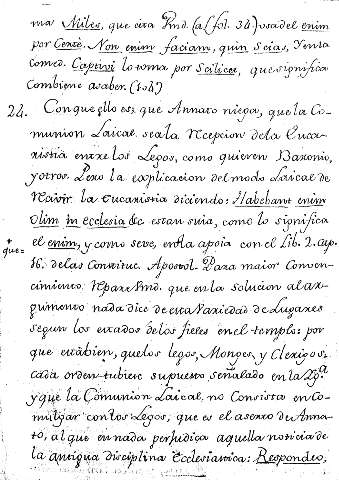 ma Miles, que cita Vmd. (al fol. 34) usa del enim
por Certè. Non enim faciam, quin Scias, Yenta
comed. Captivi lo toma por Scilicet, que significa
Combiene asaber. (104)
24. Con que ello es; que Annato niega, que la Co-
munion Laical, sea la Recepcion dela Euca-
ristia entre los Legos, como quieren Baronio,
y otros. Pero la explicacion del modo Laical de
recivir la Eucaristia diciendo: Habebant enim
Olim in ecclesia &c estan suia, como lo significa
el enim, y como seve, en + que = la apoia con el Lib. 2. Cap.
16. de las Constituc. Apostol. Para maior Conven-
cimiento. Repare Vmd. que en la solucion al ar-
gumento nada dice de esta Variedad de Lugares
segun los estados delos fieles en el templo: por
que està bien, quelos legos, Monges, y Clerigos:
cada orden tubiese su puesto señalado en la Ygª
y què la Comunion Laical, no Consista en Co-
mulgar con los Legos, que es el aserto de Anna-
to, al que en nada perjudica aquella noticia de
la antigua disciplina Ecclesiastica: Respondeo,